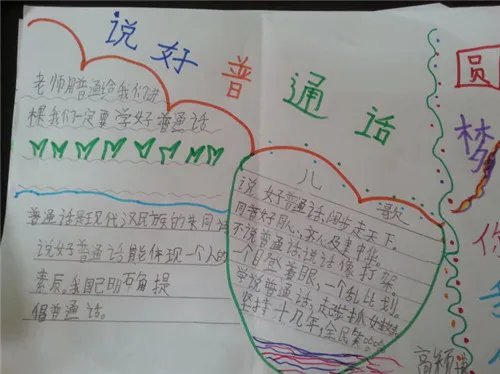 说好普通话
老师用普通给我们讲
棵我们一定要学好普通话
普通话是现代汉民族的共同语
说好普通话能体现一个人的
素质。我国已明确提
倡普通话。
儿歌
说好普通话,阔步走天下。
同普好同
不说普通话,说话像打架
一个目登着眼,一个乱比划。
学说普通话,走步抓娃娃
坚持十几年,全民
圆
梦
高颖